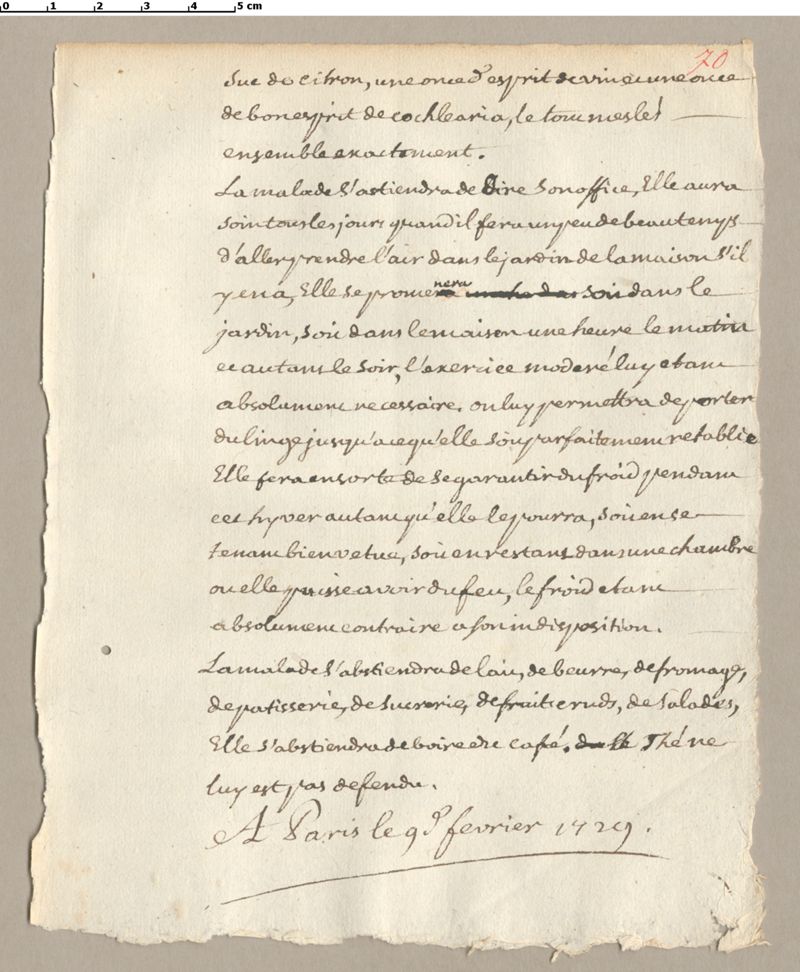 0 1 2 3 4 5 cm
70
suc de citron, une once d'esprit de vin et une once
de bon esprit de cochlearia, le tout meslés
ensemble exactement.
La malade s'astiendra de dire son office, Elle aura
soin tous les jours quand il fera un peu de beau temps
d'aller prendre l'air dans le jardin de la maison s'il
y en a, Elle se promenera soit dans le
jardin, soit dans le maison une heure le matin
et autant le soir, l'exercice moderé luy etant
absolument necessaire. on luy permettra de porter
du linge jusqu'a ce qu'elle soit parfaitement retablie
Elle fera en sorte de se garantir du froid pendant
cet hyver autant qu'elle le pourra, soit en se
tenant bien vetue, soit en restant dans une chambre
ou elle puisse avoir du feu, le froid etant
absolument contraire a son indisposition.
La malade s'abstiendra de lait, de beurre, de fromage,
de patisserie, de sucrerie, de fruits cruds, de salades,
Elle s'abstiendra de boire du café. le Thé ne
luy est pas defendu.
A Paris le 9d. fevrier 1729.